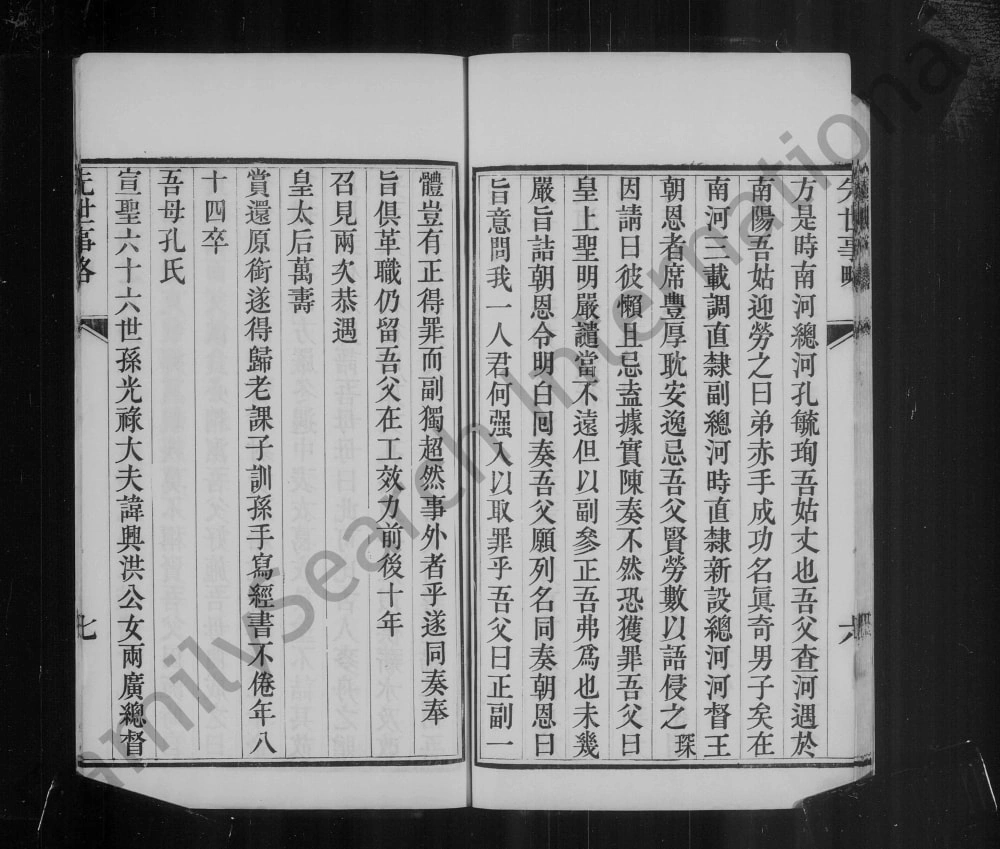 先世事略
六
方是時南河總河孔毓珣吾姑丈也吾父查河遇於
南陽吾姑迎勞之曰弟赤手成功名眞奇男子矣在
南河三載調直隸副總河時直隸新設總河河督王
朝恩者席豐厚耽安逸忌吾父賢勞數以語侵之琛
因請曰彼懶且忌盍據實陳奏不然恐獲罪吾父曰
皇上聖明嚴譴當不遠但以副參正吾弗爲也未幾
嚴旨詰朝恩令明白回奏吾父願列名同奏朝恩曰
旨意問我一人君何强入以取罪乎吾父曰正副一
體豈有正得罪而副獨超然事外者乎遂同奏奉
旨俱革職仍留吾父在工效力前後十年
召見兩次恭遇
皇太后萬壽
賞還原銜遂得歸老課子訓孫手寫經書不倦年八
十四卒
吾母孔氏
宣聖六十六世孫光祿大夫諱興洪公女兩廣總督
先世事略
七
FamilySearch International